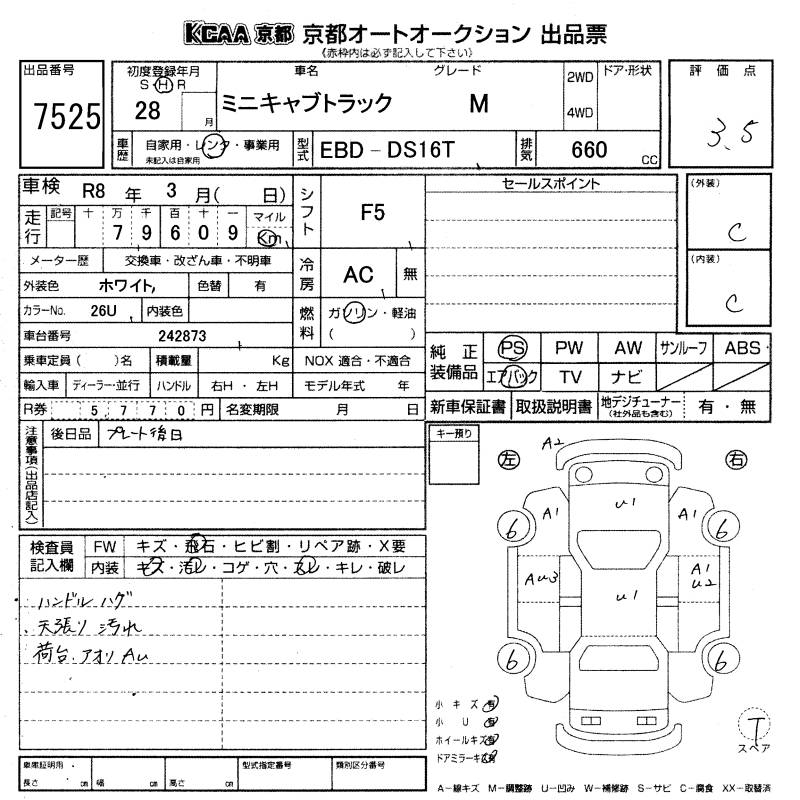 KCAA 京都 京都オートオークション 出品票
《赤枠内は必ず記入して下さい》
出品番号
7525
初度登録年月
S H R
28 月
車名 グレード
ミニキャブトラック M
2WD
4WD
ドア・形状
車歴
自家用・レンタ・事業用
未記入は自家用
型式
EBD－DS16T
排気
660 CC
評価点
3.5
車検 R8 年 3 月( 日)
走行
記号 十 万 千 百 十 一 マイル
7 9 6 0 9 Km
シフト
F5
メーター歴 交換車・改ざん車・不明車
冷房
AC 無
外装色 ホワイト, 色替 有
カラーNo. 26U 内装色
燃料
ガソリン・軽油
( )
車台番号 242873
乗車定員( )名 積載量 Kg NOX 適合・不適合
輸入車 ディーラー・並行 ハンドル 右H・左H モデル年式 年
R券 5 7 7 0 円 名変期限 月 日
セールスポイント
(外装)
C
(内装)
C
純正装備品
PS PW AW サンルーフ ABS
エアバック TV ナビ
新車保証書 取扱説明書 地デジチューナー
(社外品も含む)
有・無
注意事項(出品店記入)
後日品 プレート後日
キー預り
検査員記入欄
FW キズ・飛石・ヒビ割・リペア跡・X要
内装 キズ・汚レ・コゲ・穴・スレ・キレ・破レ
ハンドル ハゲ
天張り 汚れ
荷台.アオリ Au
左 右
A2
U1
A1 A1
6 6
Au3
A1
U2
U1
6 6
小キズ 有
小U 有
ホイールキズ 有
ドアミラーキズ 有
T
スペア
車庫証明用
長さ cm 幅 cm 高さ cm
型式指定番号
類別区分番号
A－線キズ M－調整跡 U－凹み W－補修跡 S－サビ C－腐食 XX－取替済